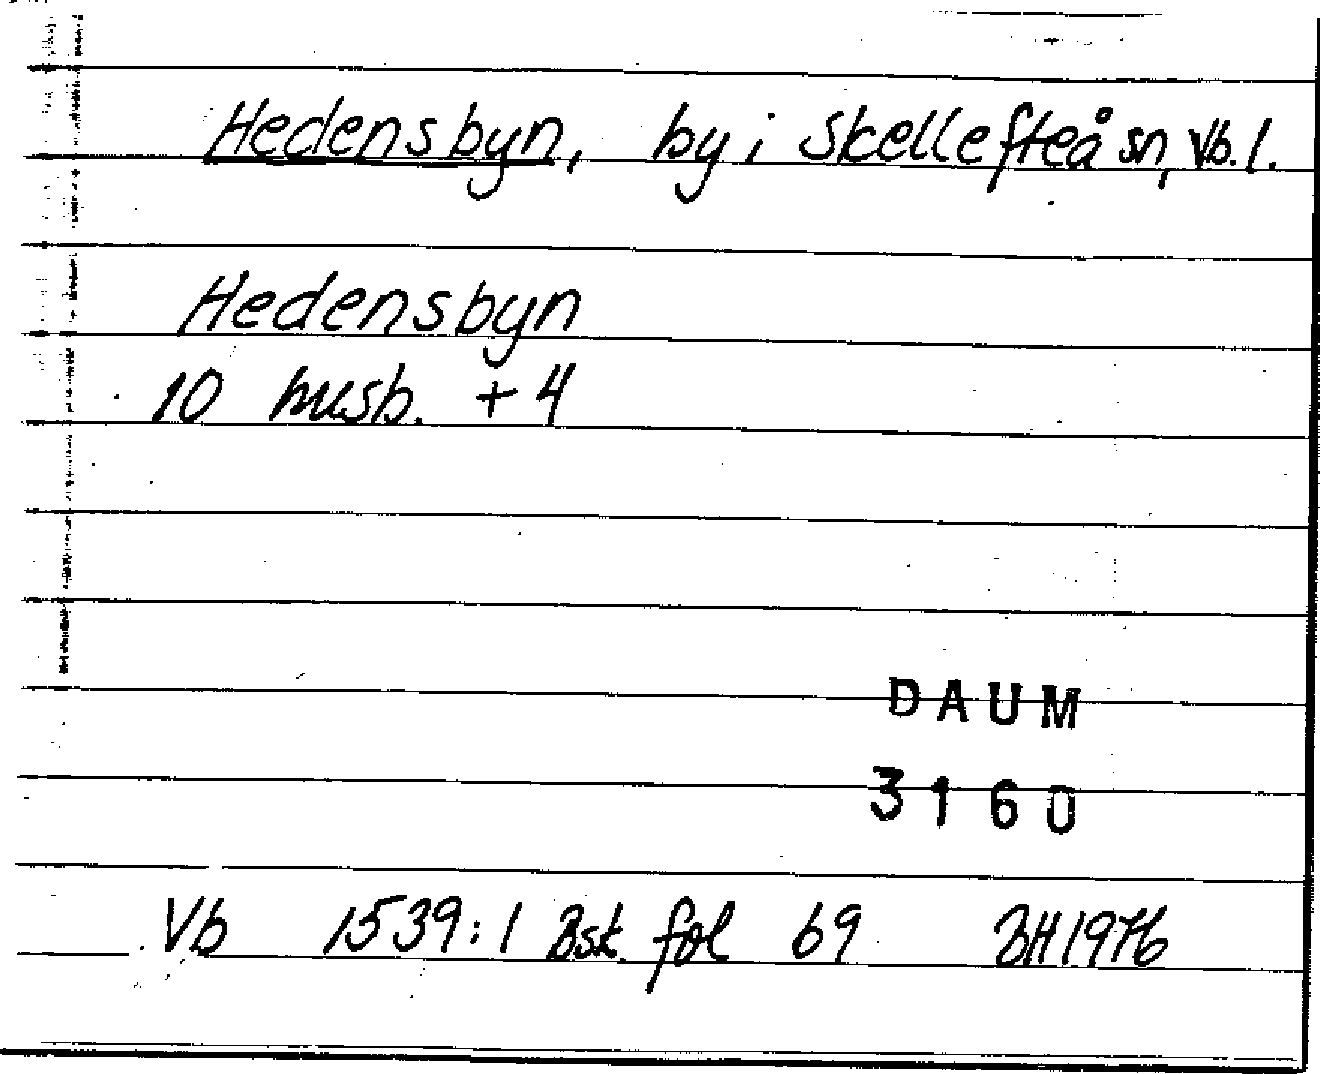 Hedensbyn, by i Skellefteå sn, Vb. l.
Hedensbyn
10 husb. + 4
DAUM
3160
Vb 1539:1 Bsk fol 69 BH 1976